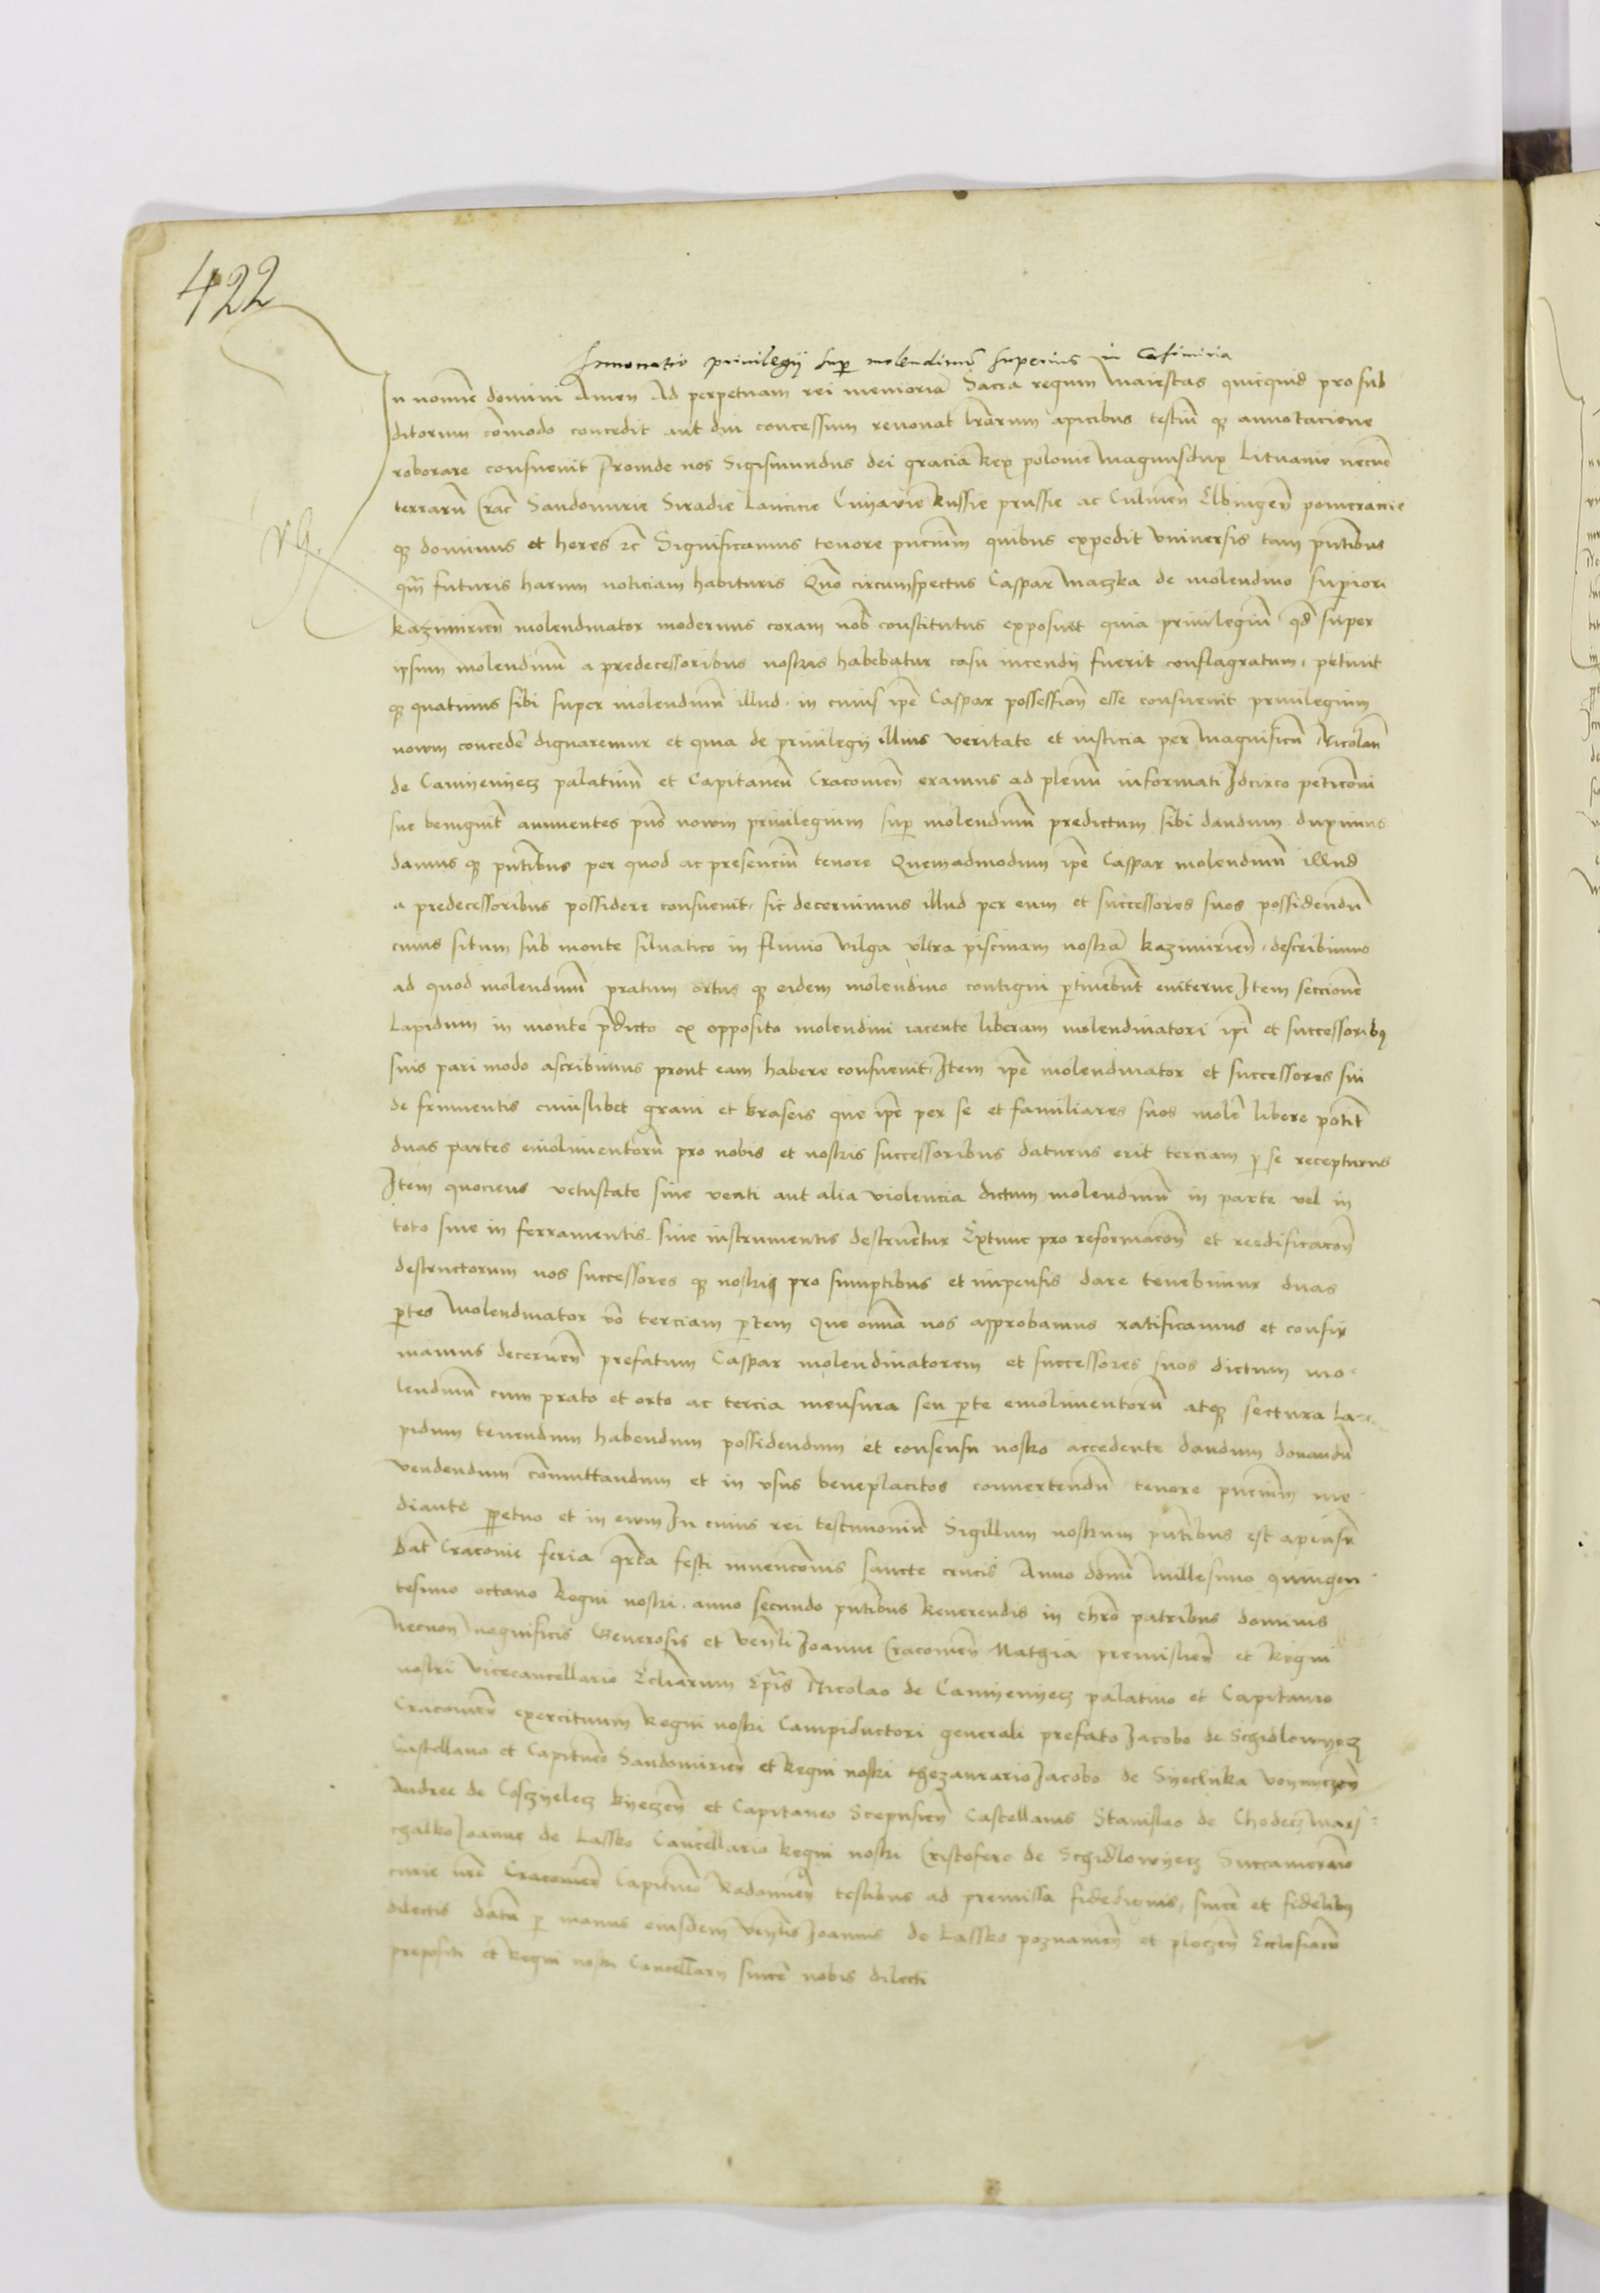 422
Innovatio privilegij sup molendinũ superius in Casimiria
In nomine domini Amen Ad perpetuam rei memoriã Sacra regum Maiestas quicquid pro sub
ditorum cõmodo concedit aut diu concessum renovat lr̃arum apicibus testiũ qȝ annotacione
roborare consuevit Proinde nos Sigismundus dei gracia Rex polonie Magnusdux Lituanie necnõ
terrarũ Crac̃ Sandomirie Siradie Lancicie Cuyavie Russie prussie ac Culmeñ Elbingeñ pomeranie
qȝ dominus et heres ec̃ Significamus tenore pñcium quibus expedit universis tam pñtibus
qm̃ futuris harum noticiam habituris Quõ circumspectus Caspar Maczka de molendino superiori
Kazimirieñ molendinator modernus coram nob̃ constitutus exposuit quia privilegiũ qd̃ super
ipsum molendinũ a predecessoribus nostris habebatur casu incendij fuerit conflagratum, petivit
qȝ quatinus sibi super molendinũ illud in cuius ip̃e Caspar possessioñ esse consuevit privilegium
novum concedẽ dignaremur et quia de privilegij illius veritate et iusticia per Magnificũ Nicolaũ
de Camyenyecz palatinũ et Capitaneũ Cracovieñ eramus ad plenũ informati Idcirco peticõni
sue benignit̃ annuentes pñs novum privilegium sup molendinũ predictum sibi dandum duximus
damus qȝ pñtibus per quod ac presenciũ tenore Quemadmodum ip̃e Caspar molendinũ illud
a predecessoribus possidere consuevit, sic decernimus illud per eum et successores suos possidendũ
cuius situm sub monte silvatico in fluvio Vilga ultra piscinam nostrã Kazimirieñ, describimus
ad quod molendinũ pratum ortus qȝ eidem molendino contigui ptinebũt eviterne Item seccionẽ
Lapidum in monte p̃dicto ex opposito molendini iacente liberam molendinatori ip̃i et successoribȝ
suis pari modo ascribimus prout eam habere consuevit, Item ip̃e molendinator et successores sui
de frumentis cuiuslibet grani et braseis que ip̃e per se et familiares suos molẽ libere potit̃
duas partes emolimentorũ pro nobis et nostris successoribus daturus erit terciam p se recepturus
Item quociens vetustate sive venti aut alia violencia dictum molendinũ in parte vel in
toto sive in ferramentis sive instrumentis destruetur Extunc pro reformacõñ et reedificacõñ
destructorum nos successores qȝ nostri pro sumptibus et impensis dare tenebimur duas
ptes Molendinator vo terciam ptem Que omĩa nos approbamus ratificamus et confir
mamus decerneñ prefatum Caspar molendinatorem et successores suos dictum mo-
lendinũ cum prato et orto ac tercia mensura seu pte emolimentorũ atqȝ sectura la-
pidum tenendum habendum possidendum et consensu nostro accedente dandum donandũ
vendendum cõmuttandum et in usus beneplacitos convertendũ tenore pñcium me-
diante ppetuo et in evum In cuius rei testimoniũ Sigillum nostrum pñtibus est apensũ
Dat̃ Cracovie feria qr̃ta festi invencõnis sancte crucis Anno dom̃ Millesimo quingen-
tesimo octavo Regni nostri anno secundo pñtibus Reverendis in chr̃o patribus dominis
Necnon Magnificis Generosis et Veñli Joanne Cracovieñ Mathia premislieñ et Regni
nostri Vicecancellario Eccliarum Epĩs Nicolao de Camyenyecz palatino et Capitaneo
Cracovieñ exercituum Regni nostri Campiductori generali prefato Jacobo de Schidlowyecz
Castellano et Capitneo Sandomirieñ et Regni nostri thezaurario Jacobo de Syechnka voynyczeñ
Andree de Cosczyelecz byeczeñ et Capitaneo Scepusieñ Castellanis Stanislao de Chodecz Mars-
chalko Joanne de Lassko Cancellario Regni nostri Cristofero de Schidlowyecz Succamerario
curie nr̃e Cracovieñ Capitneo Radomieñ testibus ad premissa fidedignis, sincẽ et fidelibȝ
dilectis datũ p manus eiusdem Veñlis Joannis de Lassko poznanieñ et ploczeñ Ecclesiarũ
prepositi et Regni nostri Cancellarij sincẽ nobis dilecti